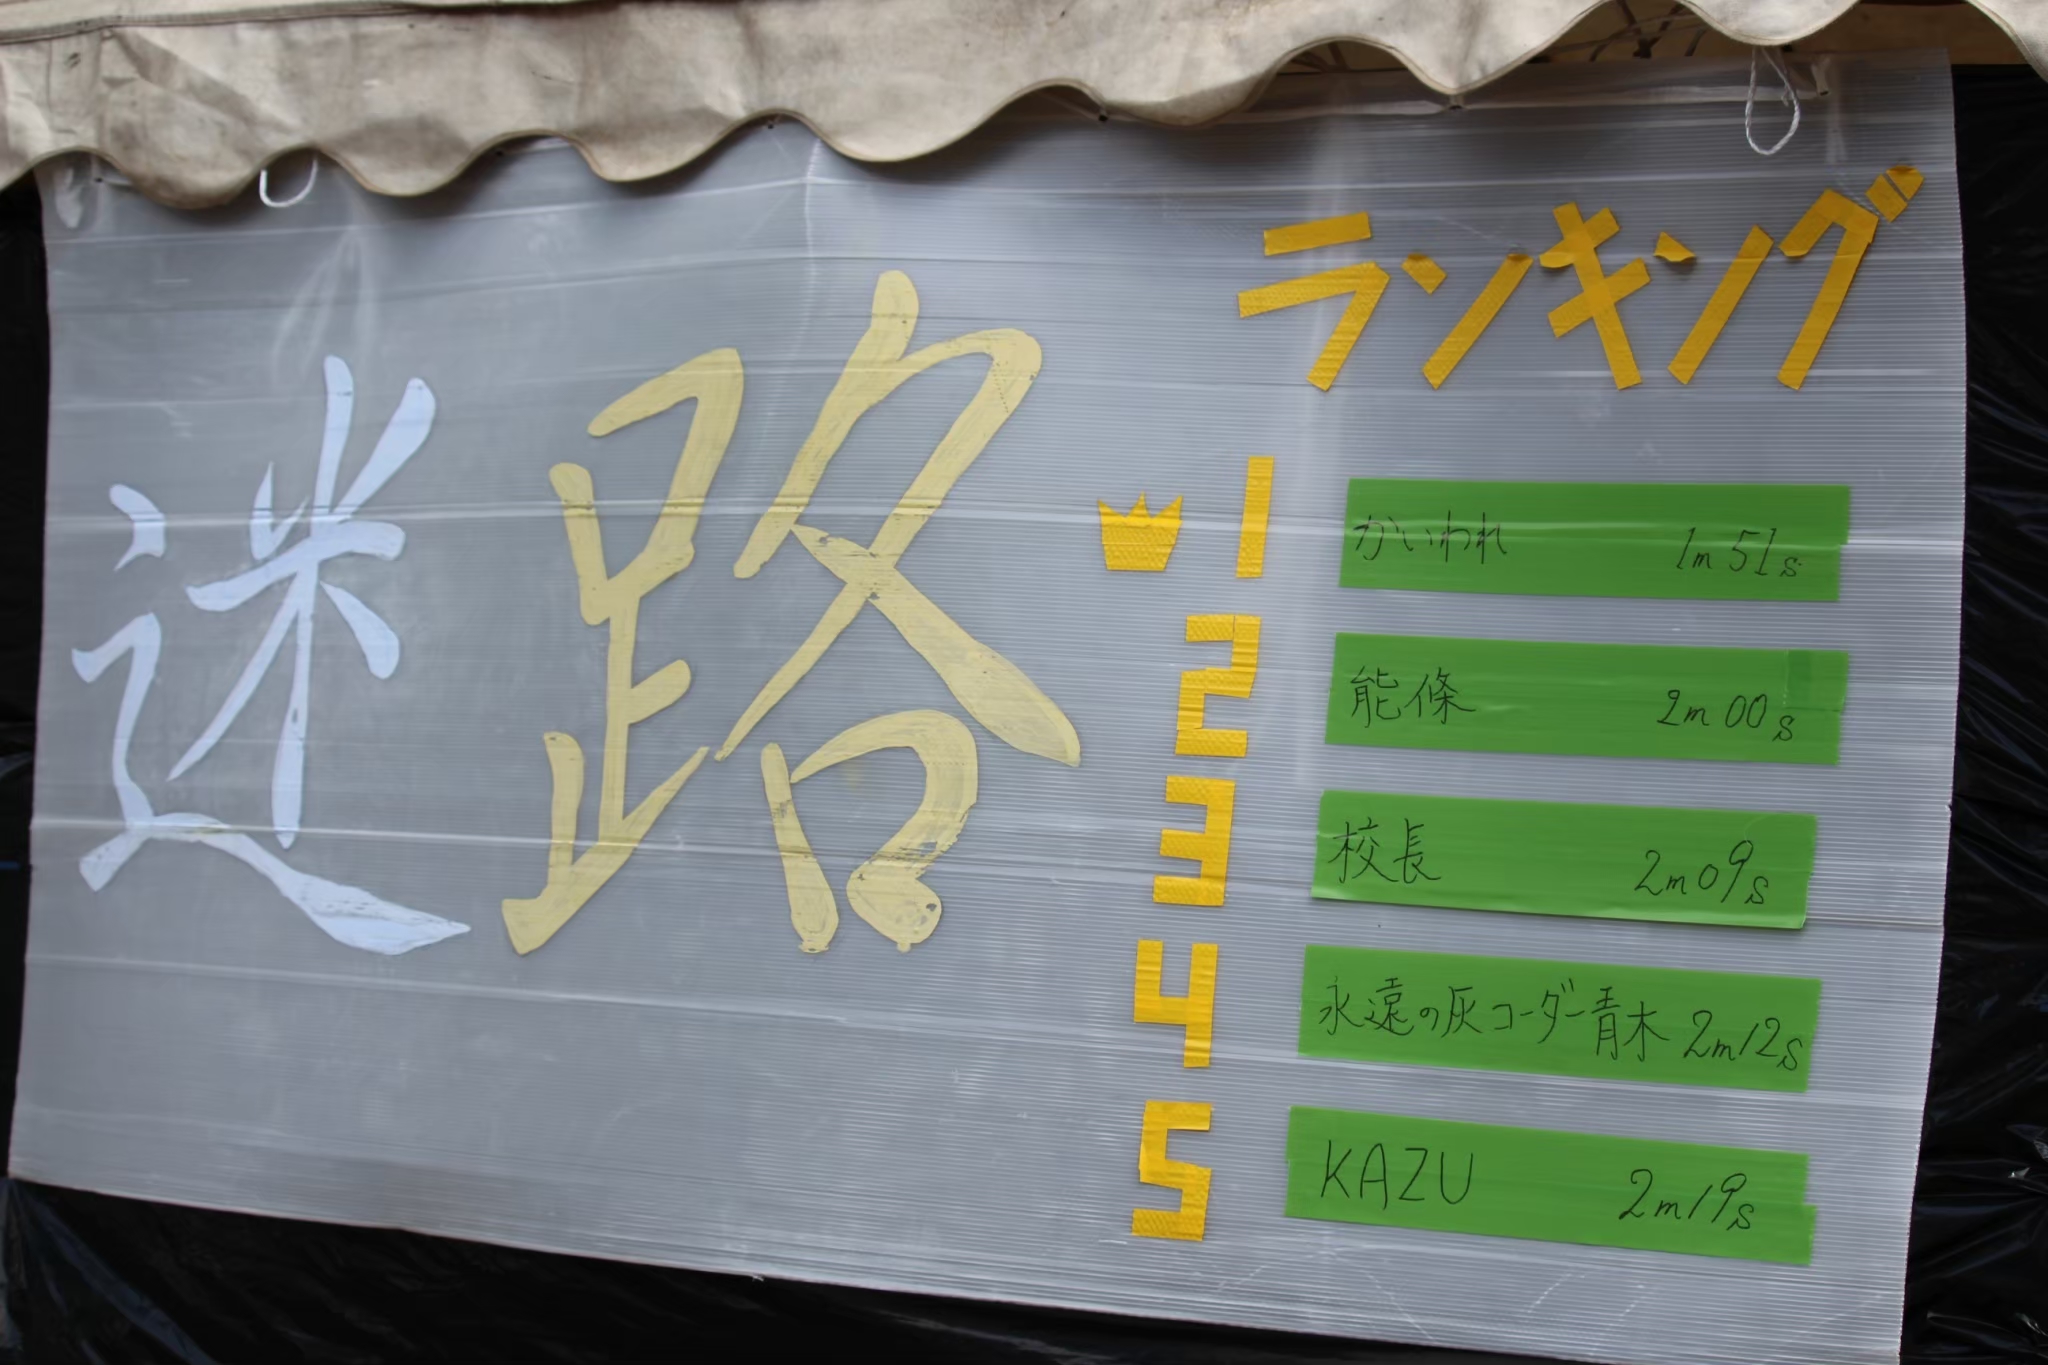 迷路
ランキング
1 かいわれ 1m51s
2 能條 2m00s
3 校長 2m09s
4 永遠の灰コーダー青木 2m12s
5 KAZU 2m19s